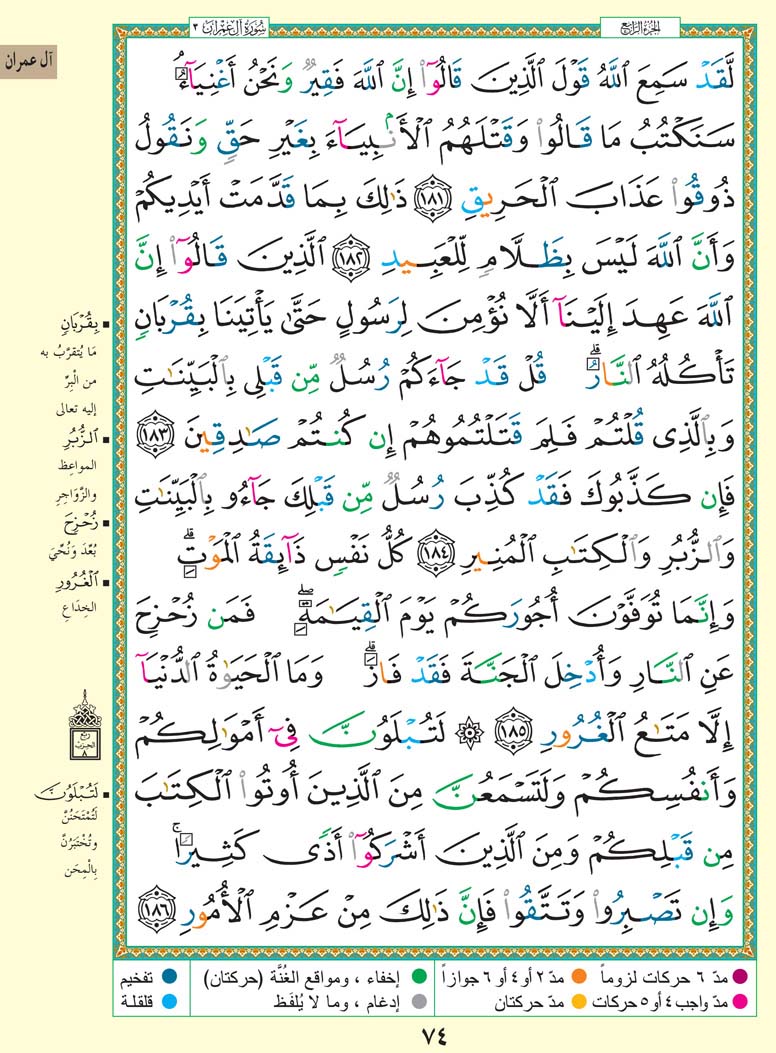 سُورَةُ آلِ عِمۡرَان ٣
الجُزءُ الرَّابِع
آل عمران
لَّقَدۡ سَمِعَ ٱللَّهُ قَوۡلَ ٱلَّذِينَ قَالُوٓاْ إِنَّ ٱللَّهَ فَقِيرٞ وَنَحۡنُ أَغۡنِيَآءُۘ
سَنَكۡتُبُ مَا قَالُواْ وَقَتۡلَهُمُ ٱلۡأَنۢبِيَآءَ بِغَيۡرِ حَقّٖ وَنَقُولُ
ذُوقُواْ عَذَابَ ٱلۡحَرِيقِ ١٨١ ذَٰلِكَ بِمَا قَدَّمَتۡ أَيۡدِيكُمۡ
وَأَنَّ ٱللَّهَ لَيۡسَ بِظَلَّامٖ لِّلۡعَبِيدِ ١٨٢ ٱلَّذِينَ قَالُوٓاْ إِنَّ
ٱللَّهَ عَهِدَ إِلَيۡنَآ أَلَّا نُؤۡمِنَ لِرَسُولٍ حَتَّىٰ يَأۡتِيَنَا بِقُرۡبَانٖ
تَأۡكُلُهُ ٱلنَّارُۗ قُلۡ قَدۡ جَآءَكُمۡ رُسُلٞ مِّن قَبۡلِي بِٱلۡبَيِّنَٰتِ
وَبِٱلَّذِي قُلۡتُمۡ فَلِمَ قَتَلۡتُمُوهُمۡ إِن كُنتُمۡ صَٰدِقِينَ ١٨٣
فَإِن كَذَّبُوكَ فَقَدۡ كُذِّبَ رُسُلٞ مِّن قَبۡلِكَ جَآءُو بِٱلۡبَيِّنَٰتِ
وَٱلزُّبُرِ وَٱلۡكِتَٰبِ ٱلۡمُنِيرِ ١٨٤ كُلُّ نَفۡسٖ ذَآئِقَةُ ٱلۡمَوۡتِۗ
وَإِنَّمَا تُوَفَّوۡنَ أُجُورَكُمۡ يَوۡمَ ٱلۡقِيَٰمَةِۖ فَمَن زُحۡزِحَ
عَنِ ٱلنَّارِ وَأُدۡخِلَ ٱلۡجَنَّةَ فَقَدۡ فَازَۗ وَمَا ٱلۡحَيَوٰةُ ٱلدُّنۡيَآ
إِلَّا مَتَٰعُ ٱلۡغُرُورِ ١٨٥ ۞ لَتُبۡلَوُنَّ فِيٓ أَمۡوَٰلِكُمۡ
وَأَنفُسِكُمۡ وَلَتَسۡمَعُنَّ مِنَ ٱلَّذِينَ أُوتُواْ ٱلۡكِتَٰبَ
مِن قَبۡلِكُمۡ وَمِنَ ٱلَّذِينَ أَشۡرَكُوٓاْ أَذٗى كَثِيرٗاۚ
وَإِن تَصۡبِرُواْ وَتَتَّقُواْ فَإِنَّ ذَٰلِكَ مِنۡ عَزۡمِ ٱلۡأُمُورِ ١٨٦
بِقُرۡبَانٖ
مَا يُتقرَّبُ به
من الْبِرِّ
إليه تعالى
ٱلزُّبُرِ
المواعِظ
والزَّوَاجِرِ
زُحۡزِحَ
بُعِّدَ وَنُحِّيَ
ٱلۡغُرُورِ
الخِدَاعِ
ربع
الحزب
٨
لَتُبۡلَوُنَّ
لَتُمْتَحَنُنَّ
وتُخْتَبَرُنَّ
بِالْمِحَن
مدّ ٦ حركات لزوماً مدّ ٢ أو ٤ أو ٦ جوازاً إخفاء ، ومواقع الغُنَّة (حركتان) تفخيم
مدّ واجب ٤ أو ٥ حركات مدّ حركتان إدغام ، وما لا يُلفَظ قلقلة
٧٤